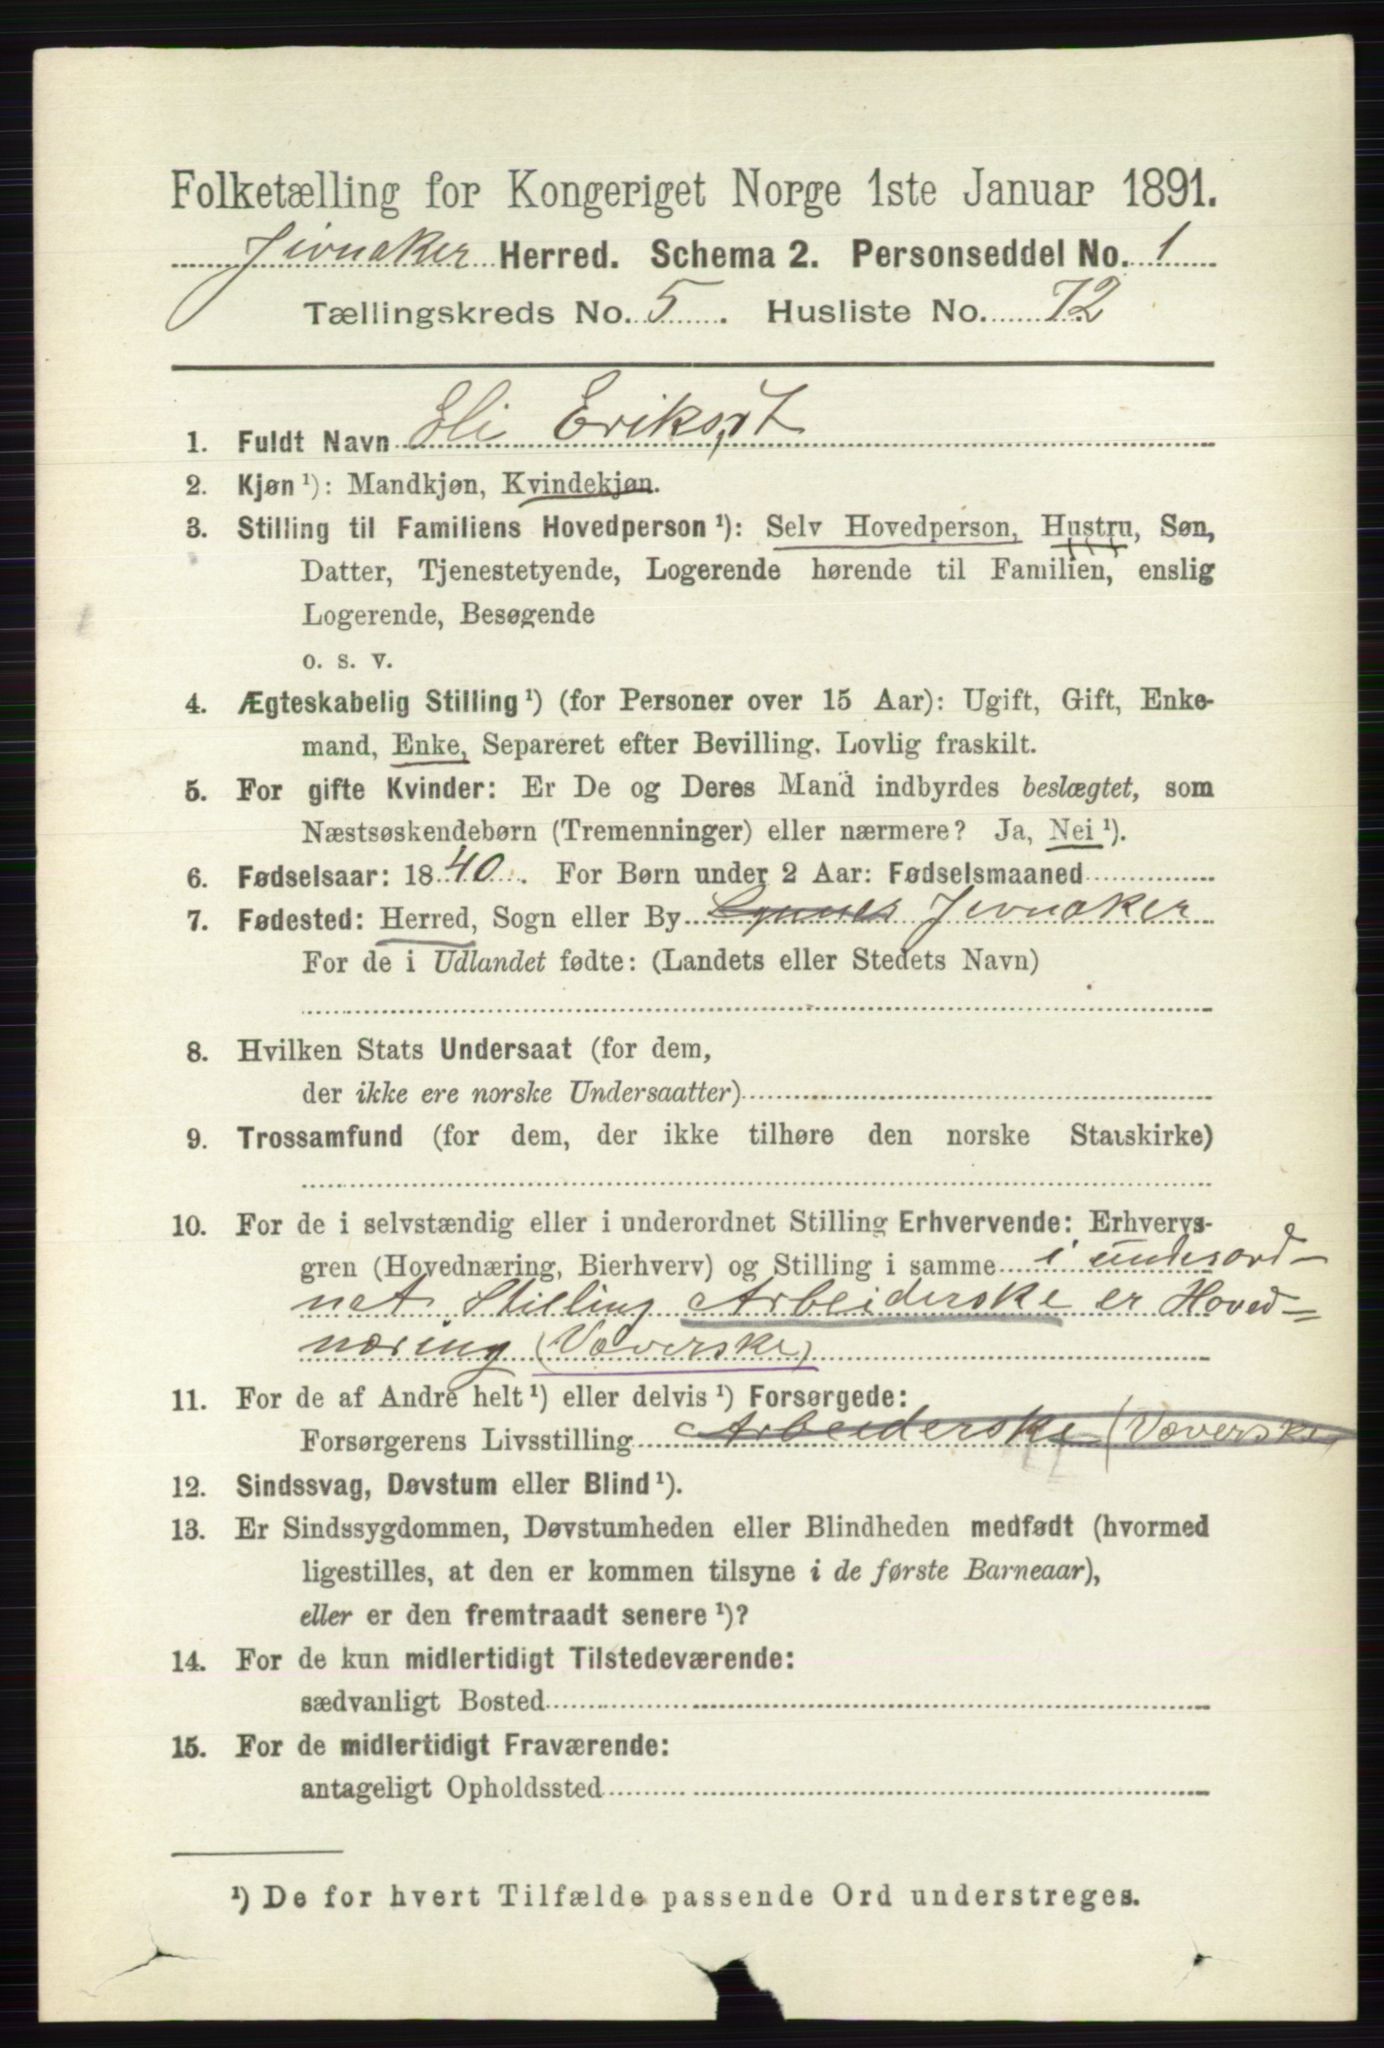 Folketælling for Kongeriget Norge 1ste Januar 1891.
Jevnaker Herred. Schema 2. Personseddel No. 1
Tællingskreds No. 5. Husliste No. 72
1. Fuldt Navn Eli Eriksdt
2. Kjøn ¹): Mandkjøn, Kvindekjøn.
3. Stilling til Familiens Hovedperson ¹): Selv Hovedperson, Hustru, Søn,
Datter, Tjenestetyende, Logerende hørende til Familien, enslig
Logerende, Besøgende
o. s. v.
4. Ægteskabelig Stilling ¹) (for Personer over 15 Aar): Ugift, Gift, Enke-
mand, Enke, Separeret efter Bevilling. Lovlig fraskilt.
5. For gifte Kvinder: Er De og Deres Mand indbyrdes beslægtet, som
Næstsøskendebørn (Tremenninger) eller nærmere? Ja, Nei ¹).
6. Fødselsaar: 1840. For Børn under 2 Aar: Fødselsmaaned
7. Fødested: Herred, Sogn eller By Jevnaker
For de i Udlandet fødte: (Landets eller Stedets Navn)
8. Hvilken Stats Undersaat (for dem,
der ikke ere norske Undersaatter)
9. Trossamfund (for dem, der ikke tilhøre den norske Statskirke)
10. For de i selvstændig eller i underordnet Stilling Erhvervende: Erhvervs-
gren (Hovednæring, Bierhverv) og Stilling i samme i underord-
net Stilling Arbeiderske er Hoved=
næring (Væverske)
11. For de af Andre helt ¹) eller delvis ¹) Forsørgede:
Forsørgerens Livsstilling Arbeiderske (Væverske
12. Sindssvag, Døvstum eller Blind ¹).
13. Er Sindssygdommen, Døvstumheden eller Blindheden medfødt (hvormed
ligestilles, at den er kommen tilsyne i de første Barneaar),
eller er den fremtraadt senere ¹)?
14. For de kun midlertidigt Tilstedeværende:
sædvanligt Bosted
15. For de midlertidigt Fraværende:
antageligt Opholdssted
¹) De for hvert Tilfælde passende Ord understreges.